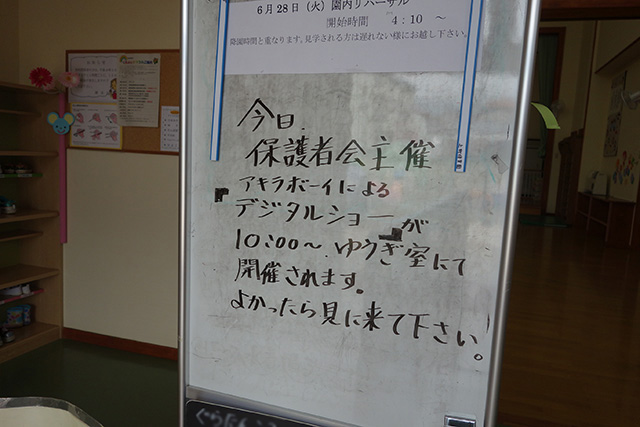 6月28日（火）園内リハーサル
開始時間　4：10　～
降園時間と重なります。見学される方は遅れない様にお越し下さい。
今日
保護者会主催
アキラボーイによる
デジタルショーが
10:00～ゆうぎ室にて
開催されます。
よかったら見に来て下さい。